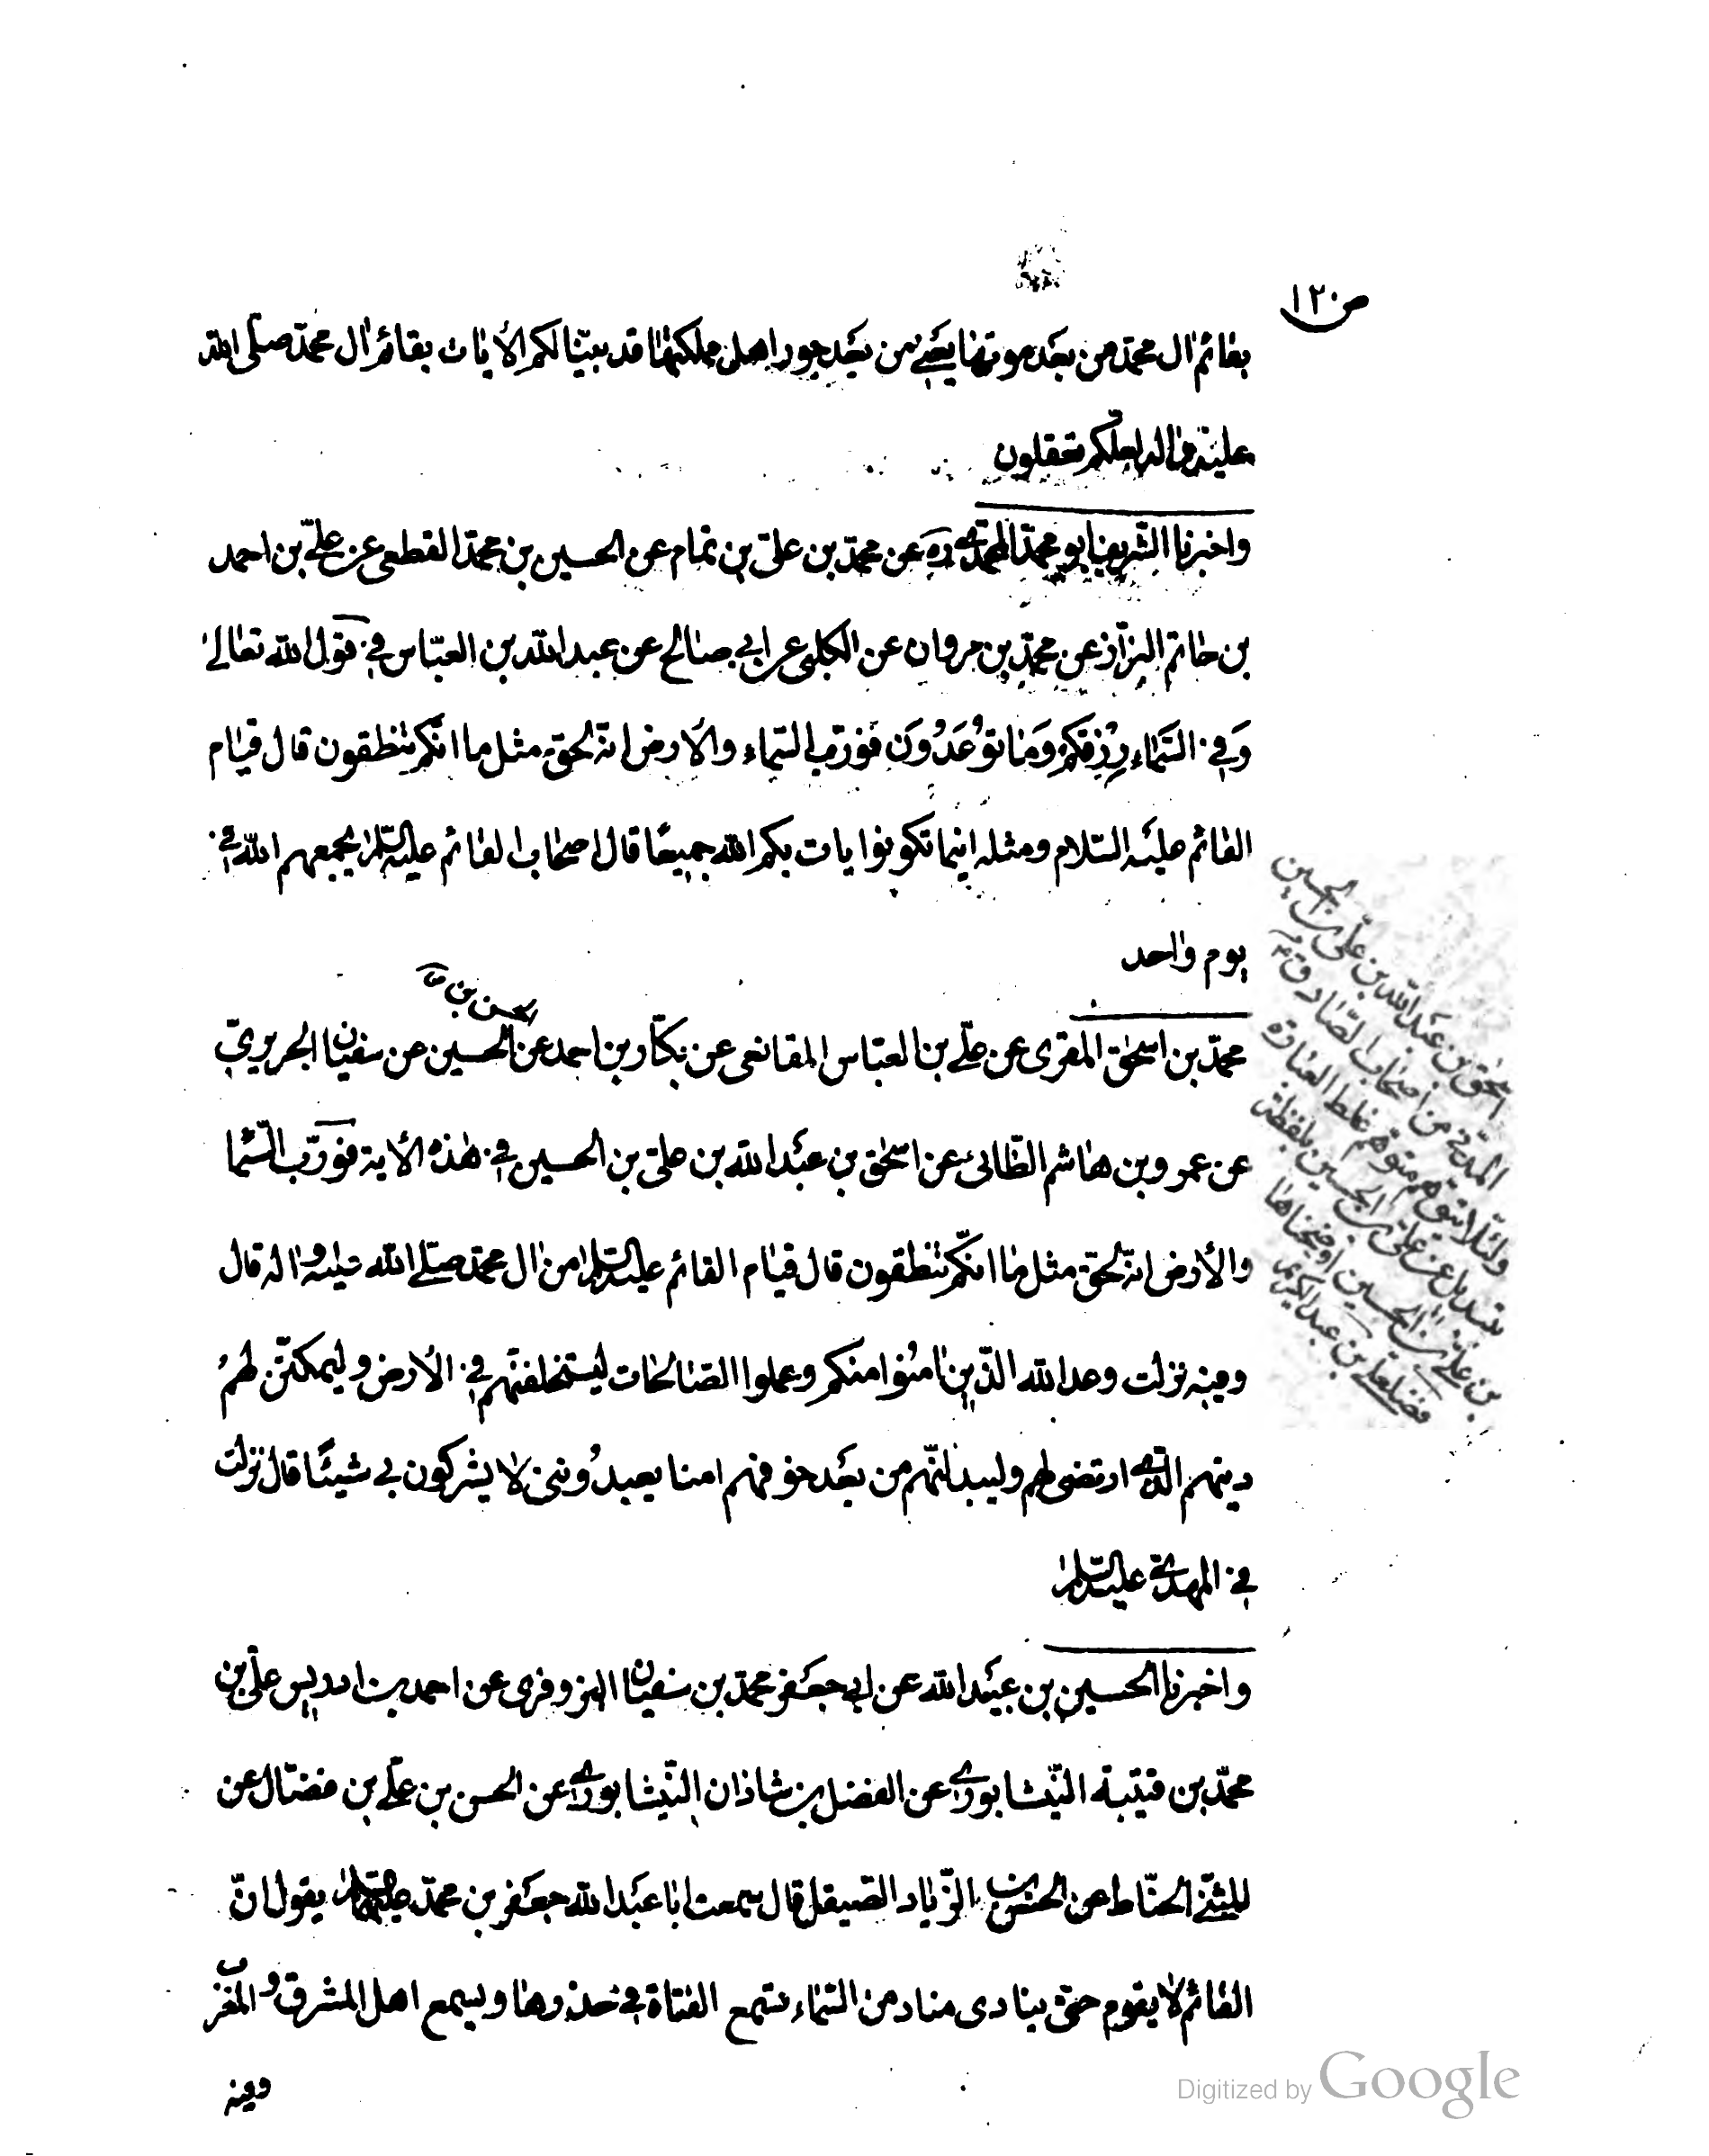 ص ١٢
بقائم ال محمد من بعد موتها يعنى من بعد جور اهل مملكتها قد بينا لكم الايات بقائم ال محمد صلى الله
عليه واله لعلكم تعقلون
واخبرنا الشريف ابو محمد المحمدى ره عن محمد بن على بن تمام عن الحسين بن محمد القطعى عن على بن احمد
بن حاتم البزاز عن محمد بن مروان عن الكلبى عن ابي صالح عن عبد الله بن العباس في قول الله تعالى
وَفي السَّماء رِزْقكم وَمَا توُعَدُونَ فورب السماء والأرض انه لحق مثل ما انكم تنطقون قال قيام
القائم عليه السلام ومثله اينما تكونوا يات بكم الله جميعا قال اصحاب القائم عليه السلام يجمعهم الله في
يوم واحد
الحسن بن
محمد بن اسحق المقرى عن على بن العباس المقانعى عن بكار بن احمد عن الحسين عن سفيان الجريرى
عن عمرو بن هاشم الطائى عن اسحق بن عبد الله بن على بن الحسين في هذه الأية فورب السماء
والأرض انه لحق مثل ما انكم تنطقون قال قيام القائم عليه السلام من ال محمد صلى الله عليه واله قال
وفيه نزلت وعد الله الذين امنوا منكم وعملوا الصالحات ليستخلفنهم في الأرض وليمكنن لهم
دينهم الذى ارتضى لهم وليبدلنهم من بعد خوفهم امنا يعبدونني لا يشركون بي شيئًا قال نزلت
في المهدى عليه السلام
واخبرنا الحسين بن عبيد الله عن ابي جعفر محمد بن سفيان البزوفرى عن احمد بن ادريس على بن
محمد بن قتيبة النيشابورى عن الفضل بن شاذان النيشابورى عن الحسن بن على بن فضال عن
المثنى الحناط عن الحسن بن الزياد الصيقل قال سمعت ابا عبد الله جعفر بن محمد يقول ان
القائم لا يقوم حتى ينادى مناد من السماء تسمع الفتاة في خدرها ويسمع اهل المشرق والمغرب
وفيه
اسحق بن عبد الله بن على بن الحسين
المدنى من اصحاب الصادق
ولئلا يتوهم متوهم غلط العبارة
بتبديل عن على بن الحسين بلفظة
بن على بن الحسين اوضحناها
فضلعلى بن عبد الكريم
Digitized by Google